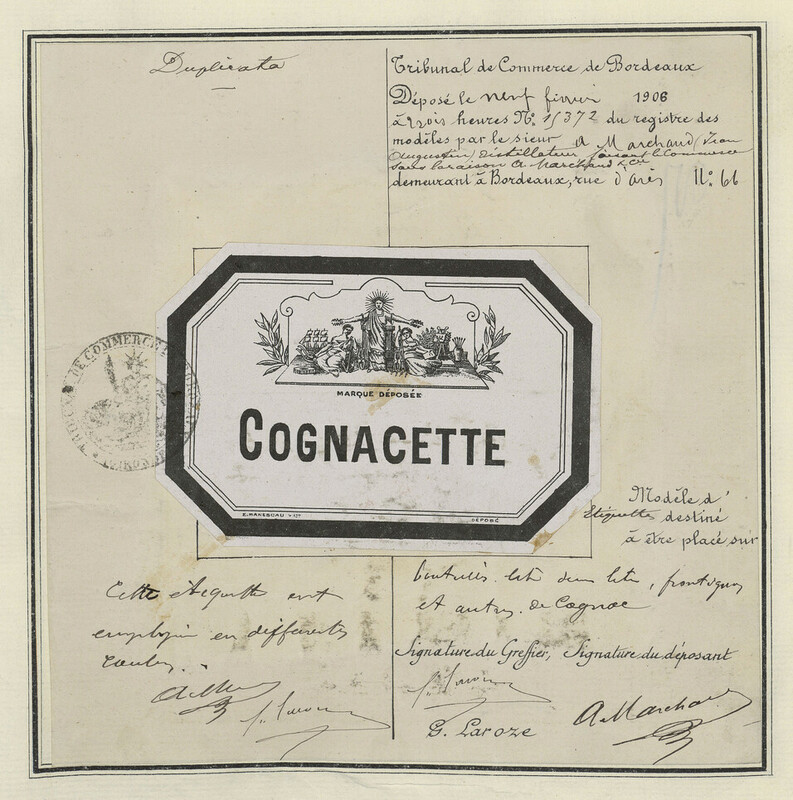 Duplicata
Tribunal de Commerce de Bordeaux
Déposé le neuf février 1906
à trois heures No. 15372 du registre des
modèles par le sieur A Marchand (Jean
Augustin) distillateur faisant le Commerce
sous la raison A. Marchand & Cie
demeurant à Bordeaux, rue d'Arès No. 66
MARQUE DÉPOSÉE
COGNACETTE
DÉPOSÉ
TRIBUNAL DE COMMERCE DE BORDEAUX
(GIRONDE)
Modèle d'
Etiquette destiné
à être placé sur
bouteilles litre demi litre, frontignan
et autres de Cognac
Cette étiquette est
employée en différentes
couleurs.
Signature du Greffier, Signature du déposant
G. Laroze
A Marchand